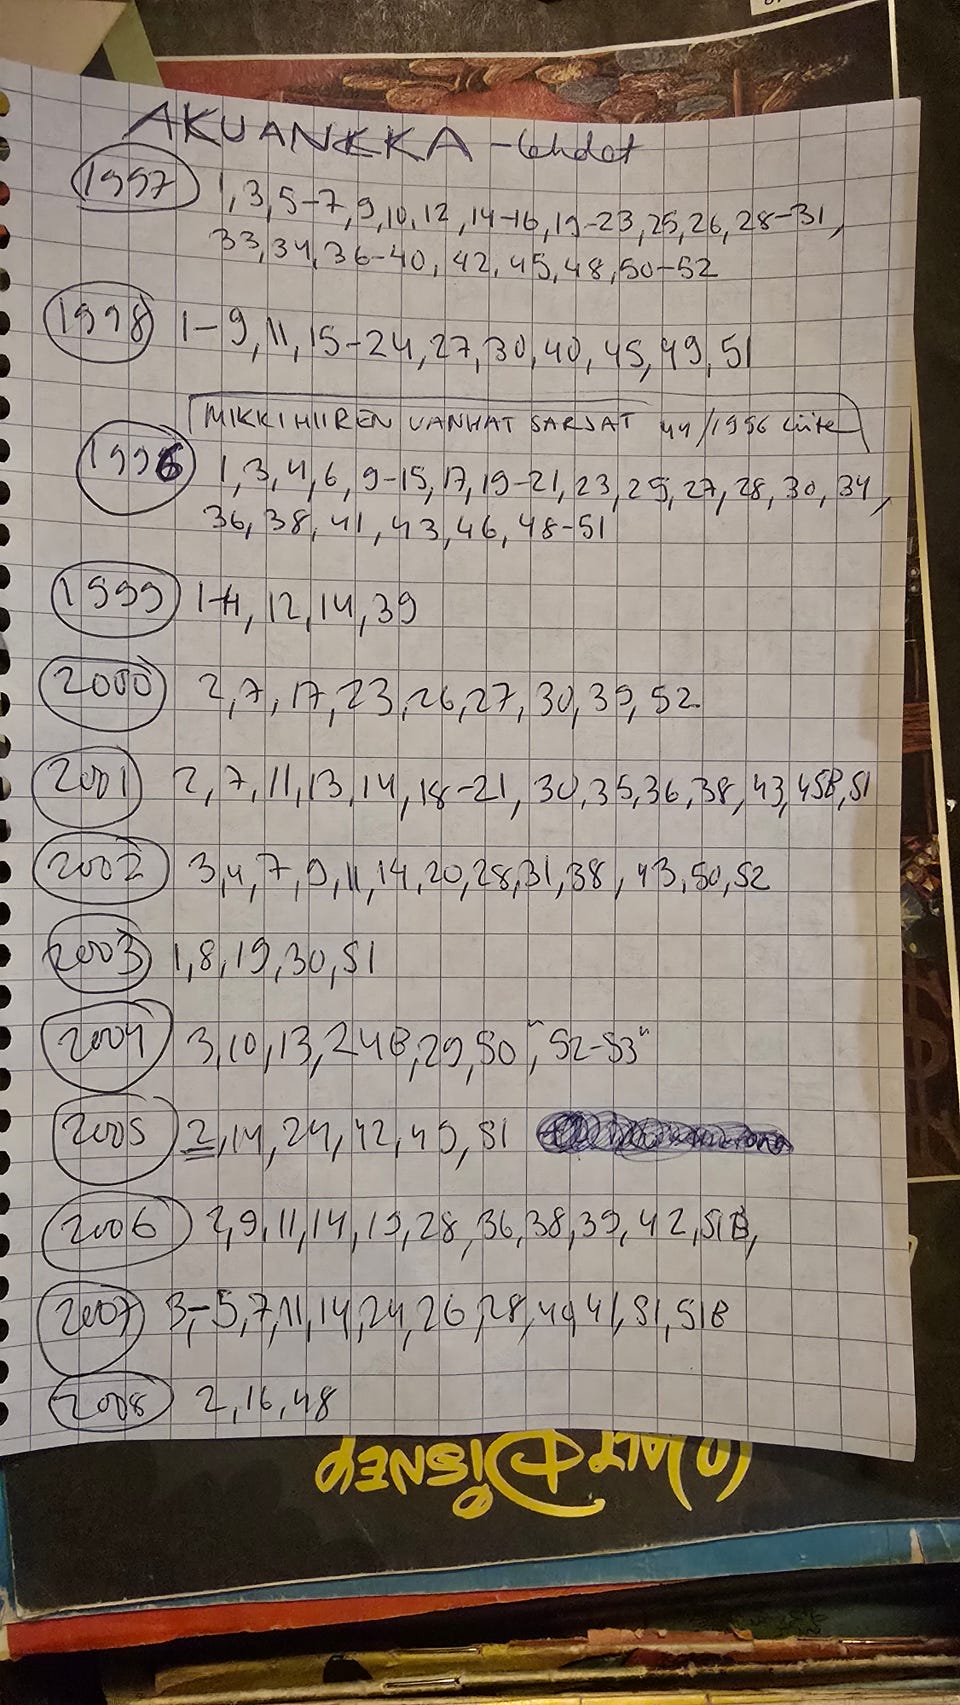 AKU ANKKA - lehdet
1997 1, 3, 5-7, 9, 10, 12, 14-16, 19-23, 25, 26, 28-31,
33, 34, 36-40, 42, 45, 48, 50-52
1998 1-9, 11, 15-24, 27, 30, 40, 45, 49, 51
MIKKI HIIREN VANHAT SARJAT 44/1996 liite
1996 1, 3, 4, 6, 9-15, 17, 19-21, 23, 25, 27, 28, 30, 34,
36, 38, 41, 43, 46, 48-51
1999 1-4, 12, 14, 39
2000 2, 7, 17, 23, 26, 27, 30, 39, 52
2001 2, 7, 11, 13, 14, 18-21, 30, 35, 36, 38, 43, 45B, 51
2002 3, 4, 7, 9, 11, 14, 20, 28, 31, 38, 43, 50, 52
2003 1, 8, 19, 30, 51
2004 3, 10, 13, 24B, 29, 50, "52-53"
2005 2, 14, 24, 42, 45, 51
2006 2, 9, 11, 14, 19, 28, 36, 38, 39, 42, 51B,
2007 3-5, 7, 11, 14, 24, 26, 28, 40, 41, 51, 51B
2008 2, 16, 48
WALT DISNEY